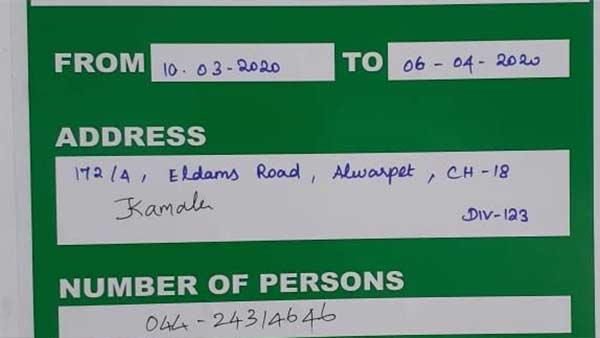 FROM 10.03-2020 TO 06-04-2020
ADDRESS
172/A, Eldams Road, Alwarpet, CH-18
Kamala DIV-123
NUMBER OF PERSONS
044-24314646